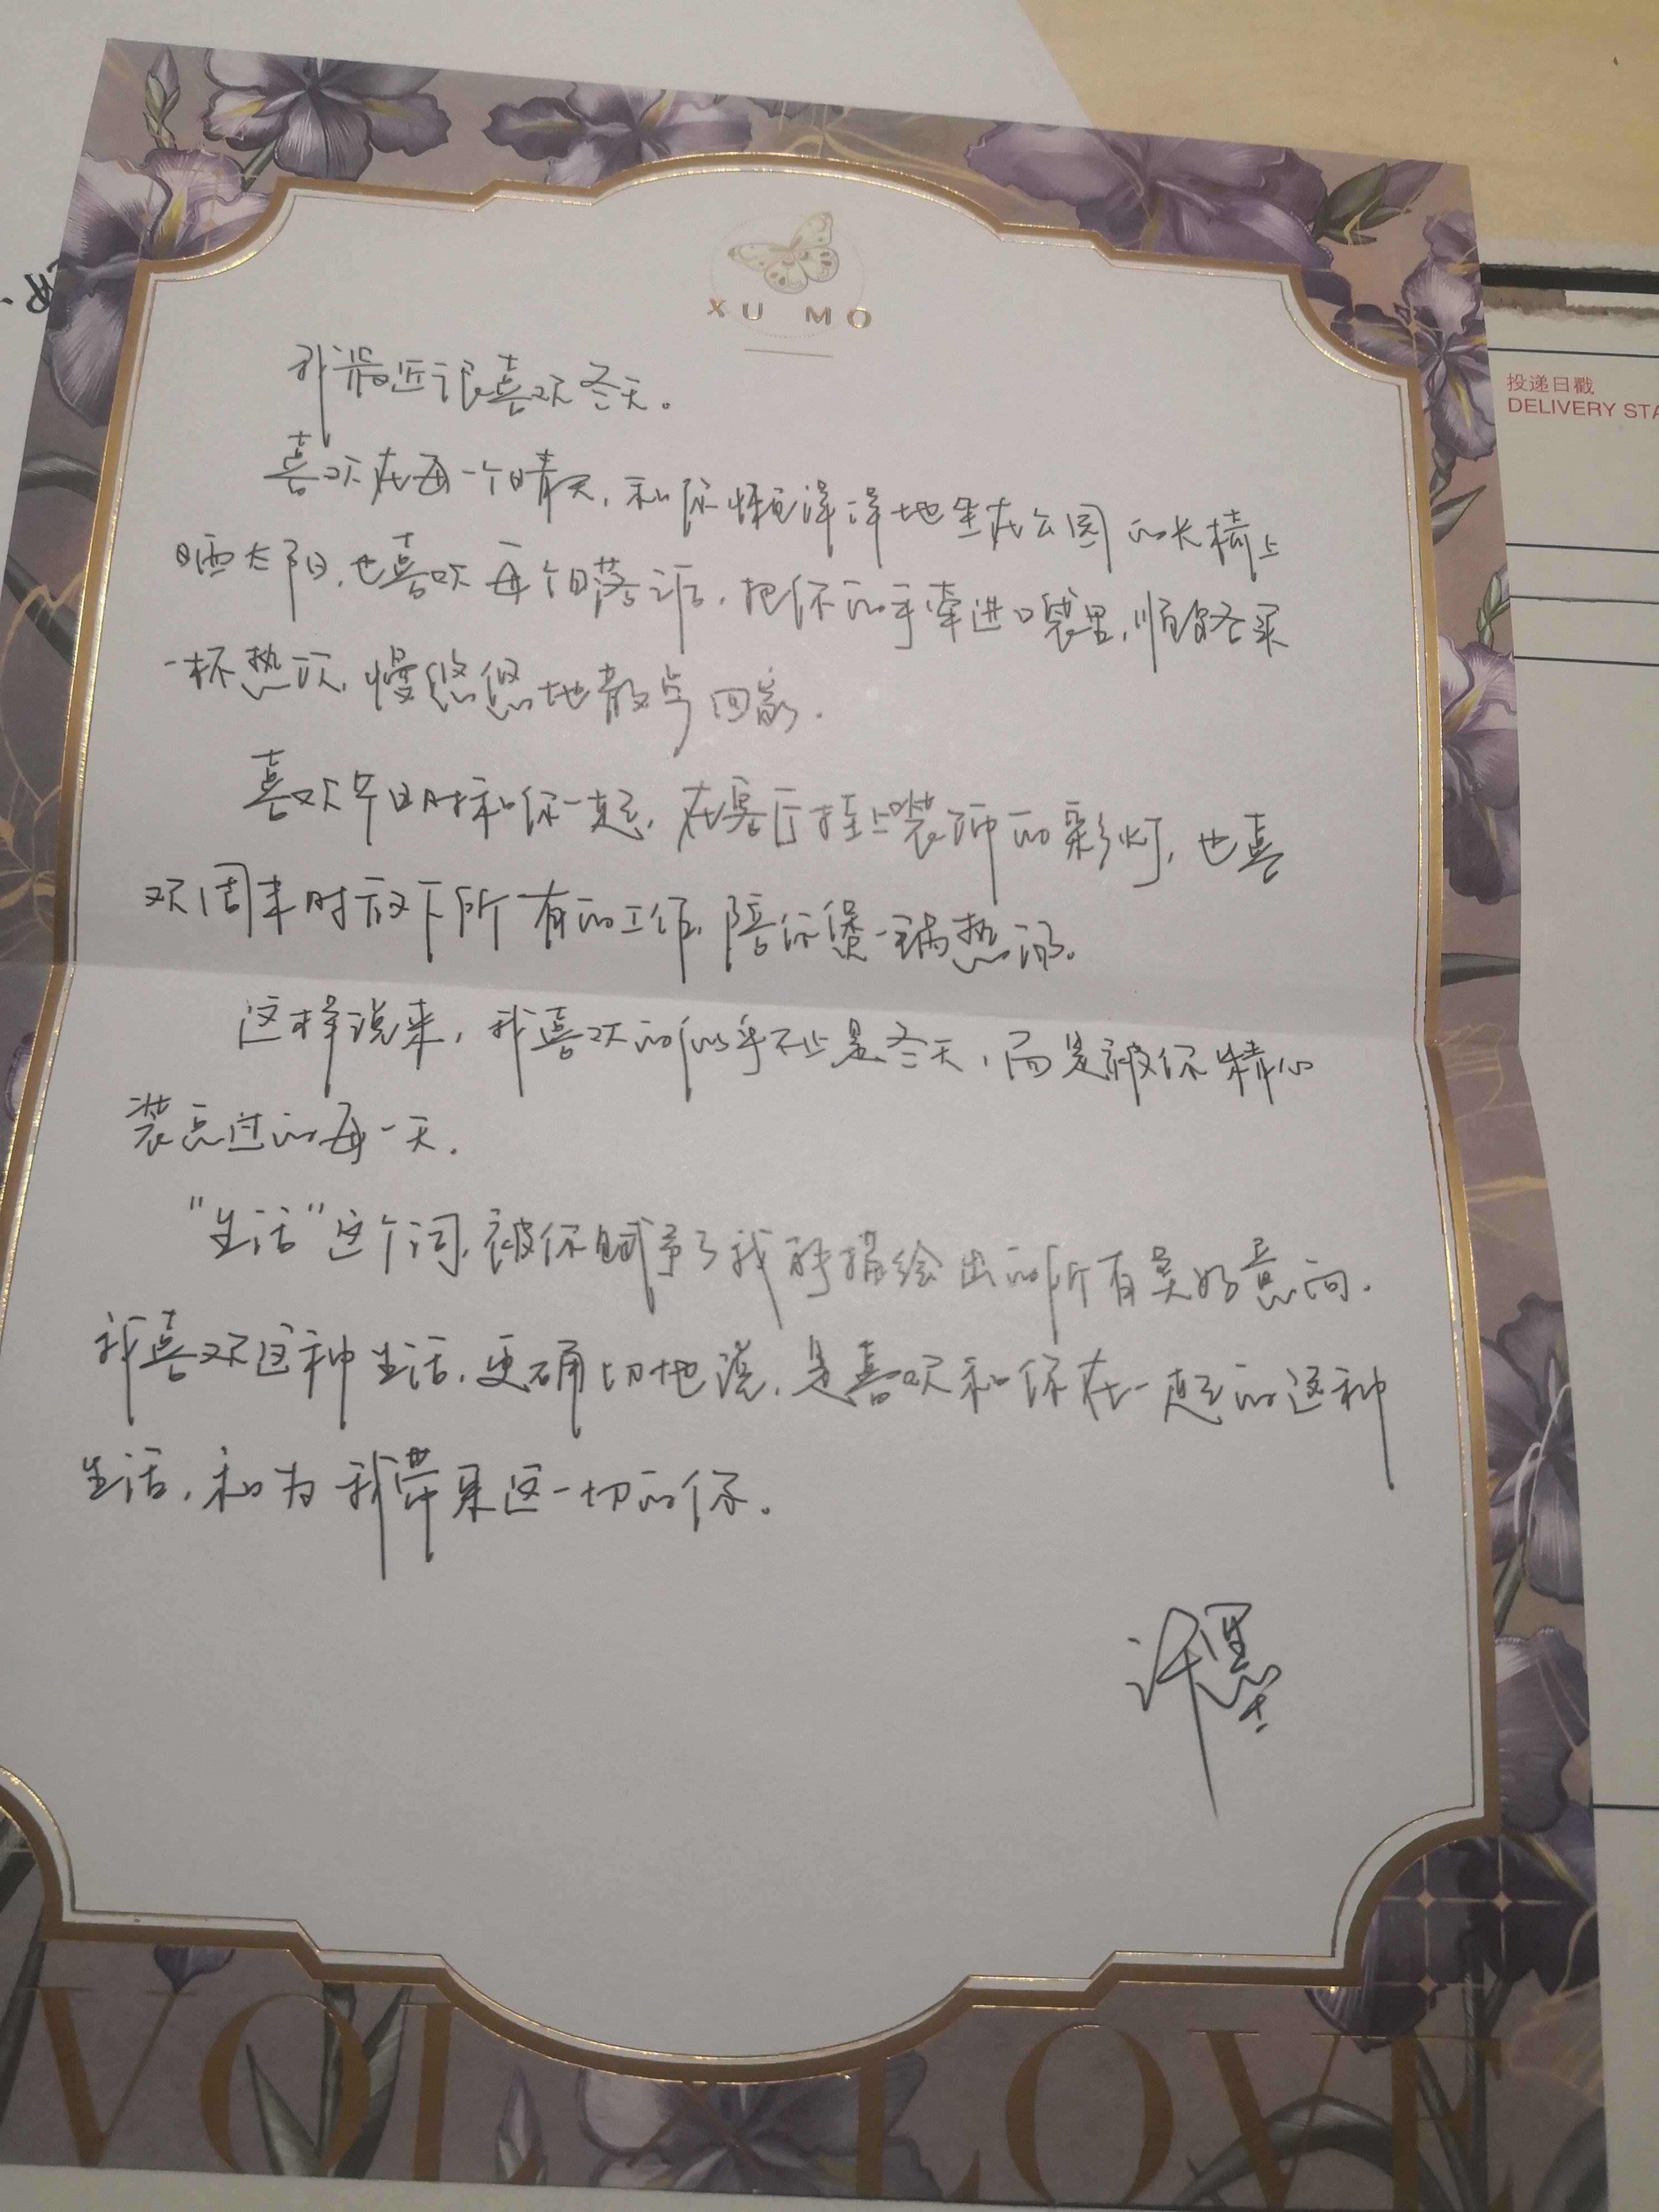 XU MO
我最近很喜欢冬天。
喜欢在每一个晴天，和你懒洋洋地坐在公园的长椅上
晒太阳，也喜欢每个日落后，把你的手牵进口袋里，顺路去买
一杯热饮，慢悠悠地散步回家。
喜欢节日时和你一起，在客厅挂上装饰的彩灯，也喜
欢周末时放下所有的工作，陪你煲一锅热汤。
这样说来，我喜欢的似乎不止是冬天，而是被你精心
装点过的每一天。
“生活”这个词，被你赋予了我能描绘出的所有美好意向。
我喜欢这种生活，更确切地说，是喜欢和你在一起的这种
生活，和为我带来这一切的你。
许墨
VOL × LOVE
投递日戳
DELIVERY STA